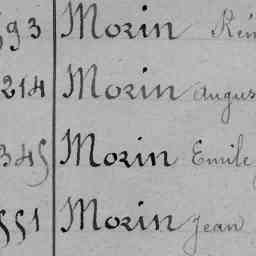 93 Morin Rém
214 Morin Augus
345 Morin Emile
551 Morin Jean